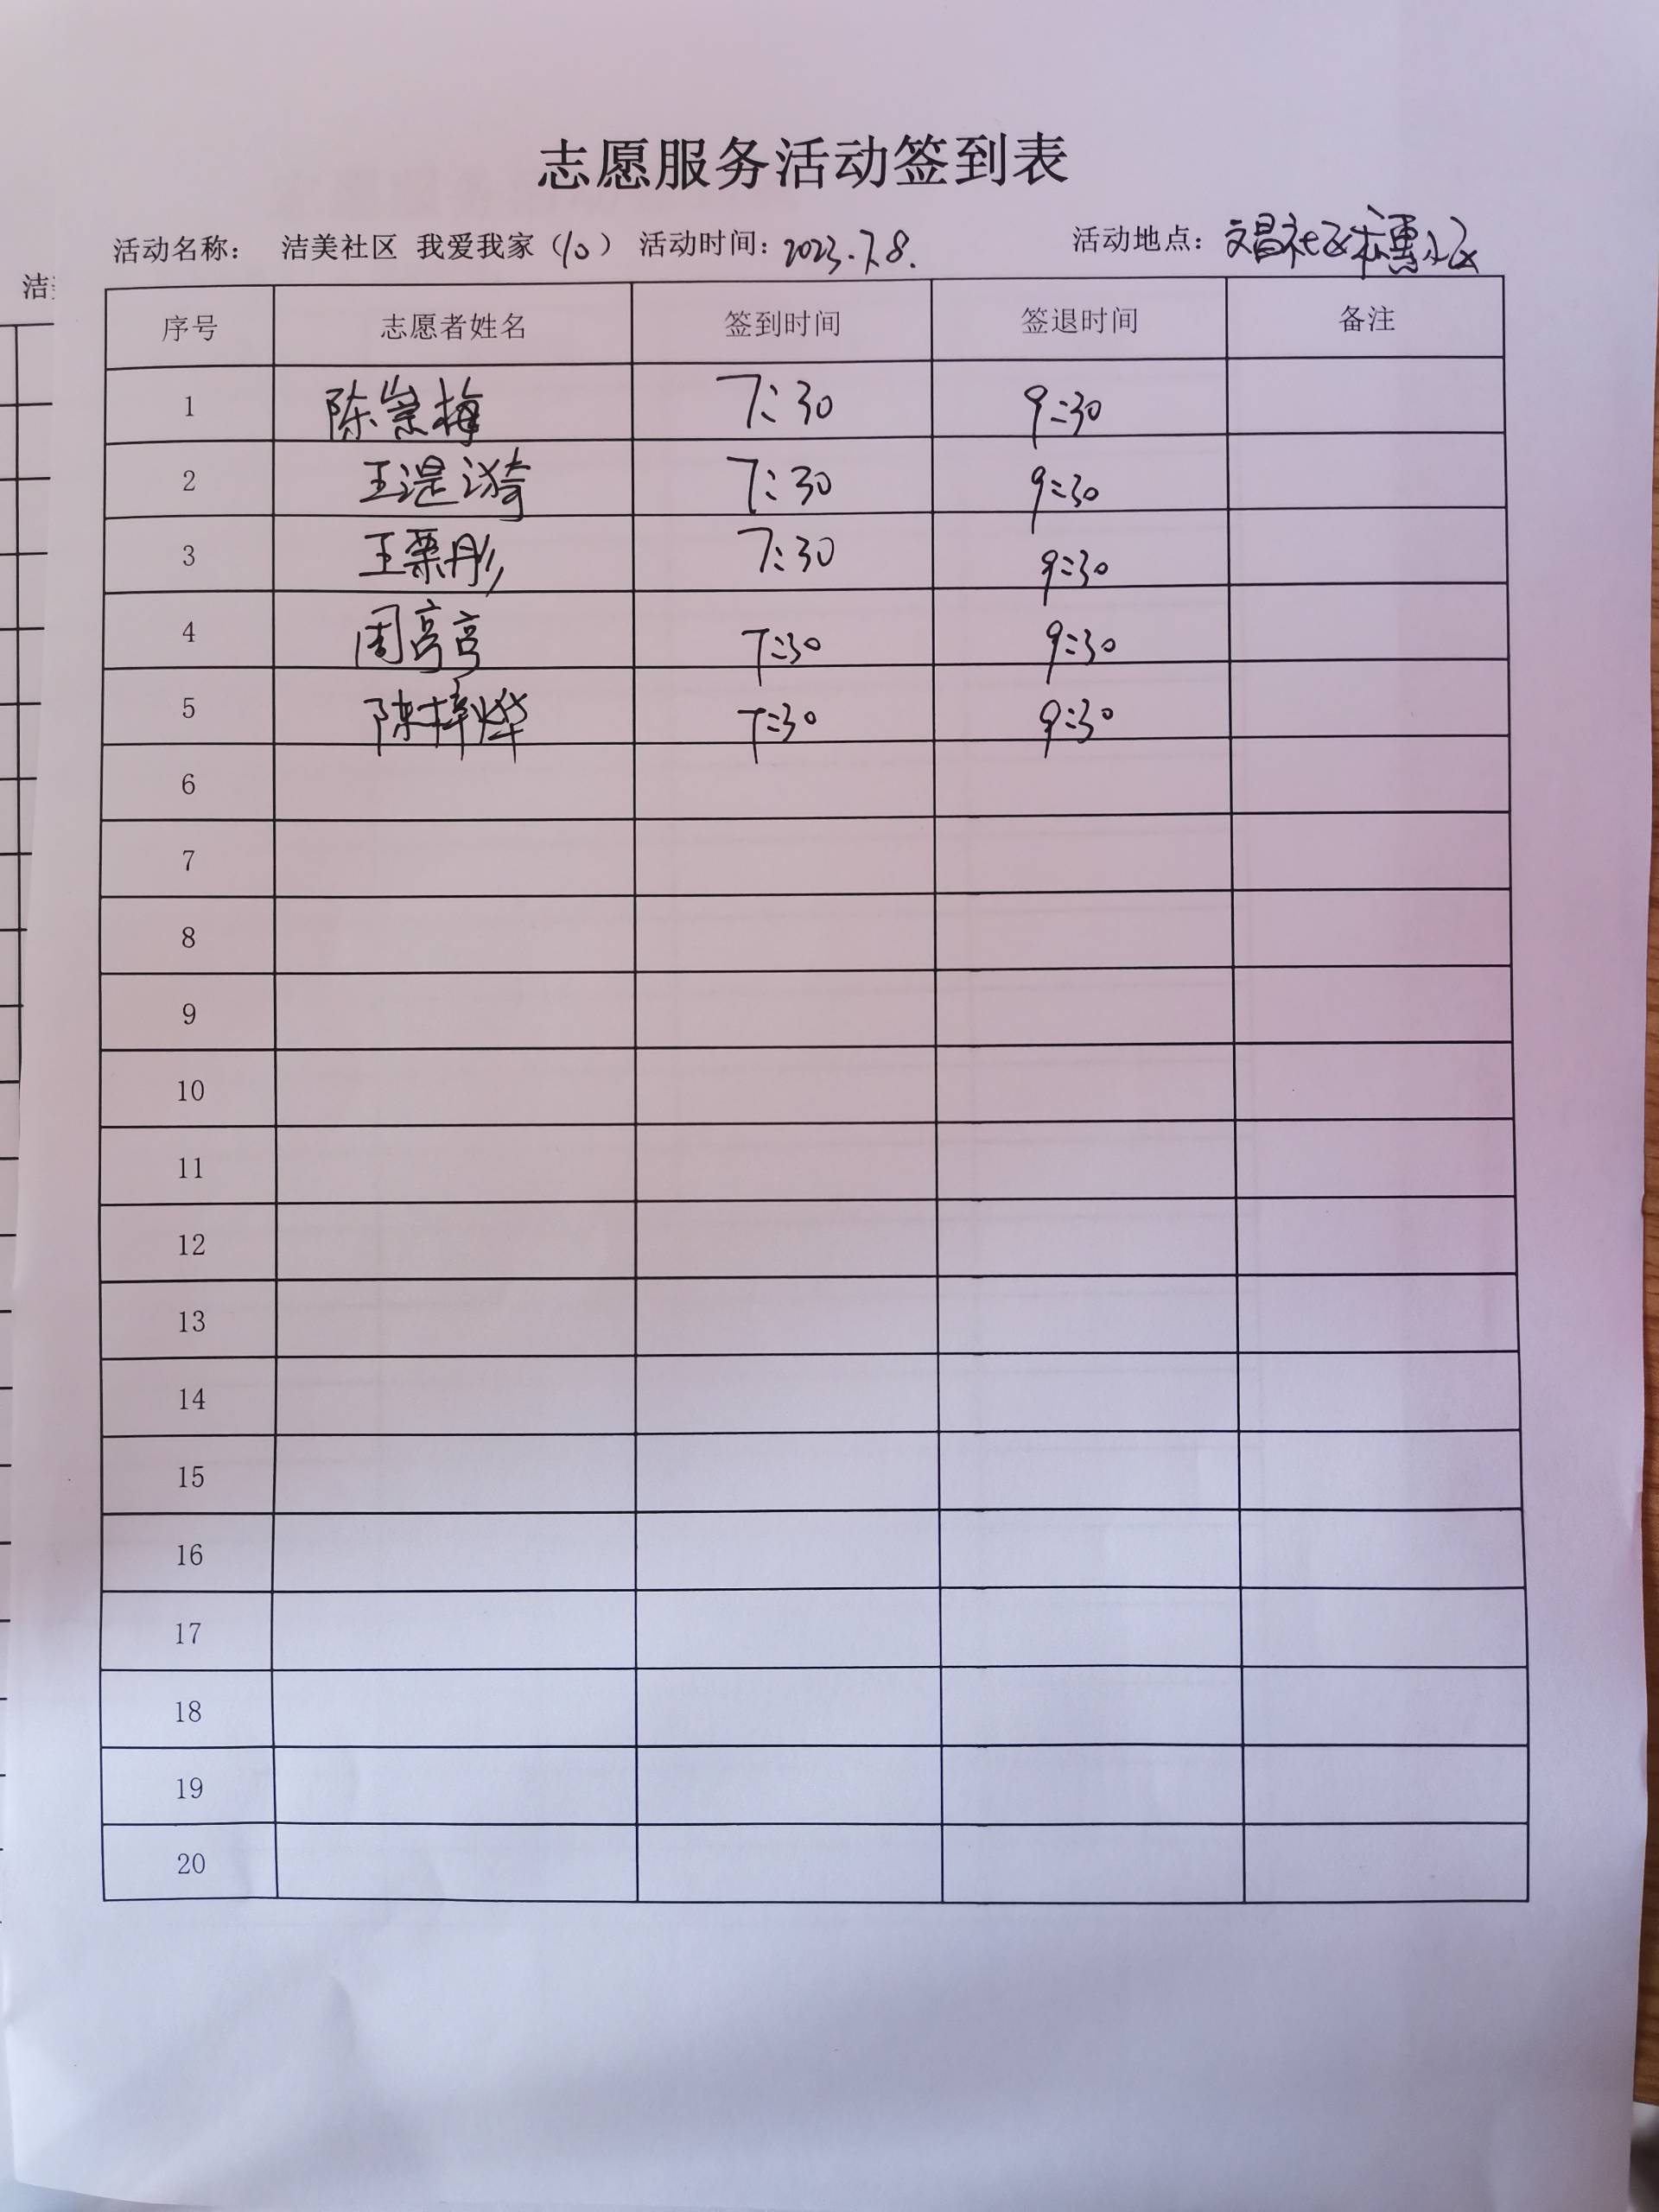 志愿服务活动签到表
活动名称： 洁美社区 我爱我家（10） 活动时间：2023.7.8. 活动地点：文昌社区本惠小区
洁
序号 志愿者姓名 签到时间 签退时间 备注
1 陈崇梅 7:30 9:30
2 王湜漪 7:30 9:30
3 王栗彤 7:30 9:30
4 周亭亭 7:30 9:30
5 陈梓烨 7:30 9:30
6
7
8
9
10
11
12
13
14
15
16
17
18
19
20